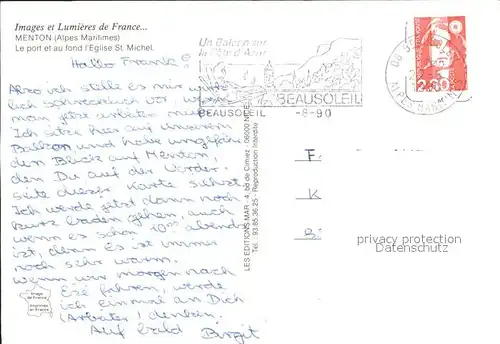 Images et Lumières de France...
MENTON (Alpes Maritimes)
Le port et au fond l'Eglise St. Michel.
Hallo Frank
Also ich stelle es mir wirk
lich schrecklich vor, wenn
man jetzt arbeiten muß
Ich sitze hier auf unserem
Balkon und habe ungefähr
den Blick auf Menton,
den Du auf der Vorder-
seite dieser Karte siehst.
Ich werde jetzt dann noch
kurz baden gehen, auch
wenn es schon 10°° abends
ist, denn Es ist immer
noch sehr warm.
Wenn wir morgen nach
Èze fahren, werde
ich einmal an Dich
(Arbeiter) denken.
Auf bald Birgit
Image
de France
LES EDITIONS MAR - 4, bd de Cimiez - 06000 NICE
Tél.: 93.85.36.25 - Reproduction Interdite
Un Balcon sur
la Côte d'Azur
BEAUSOLEIL
BEAUSOLEIL -8-90
ALPES MARITIMES
F
K
B
privacy protection
VeryImportantLot.com